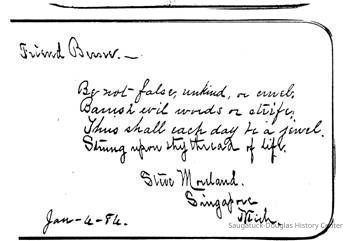 Friend Burr.—
Be not false, unkind, or cruel,
Banish evil words or strife,
Thus shall each day be a jewel,
Strung upon thy thread of life.
Steve Morland.
Singapore
Mich
Jan-4-84.
Saugatuck-Douglas History Center